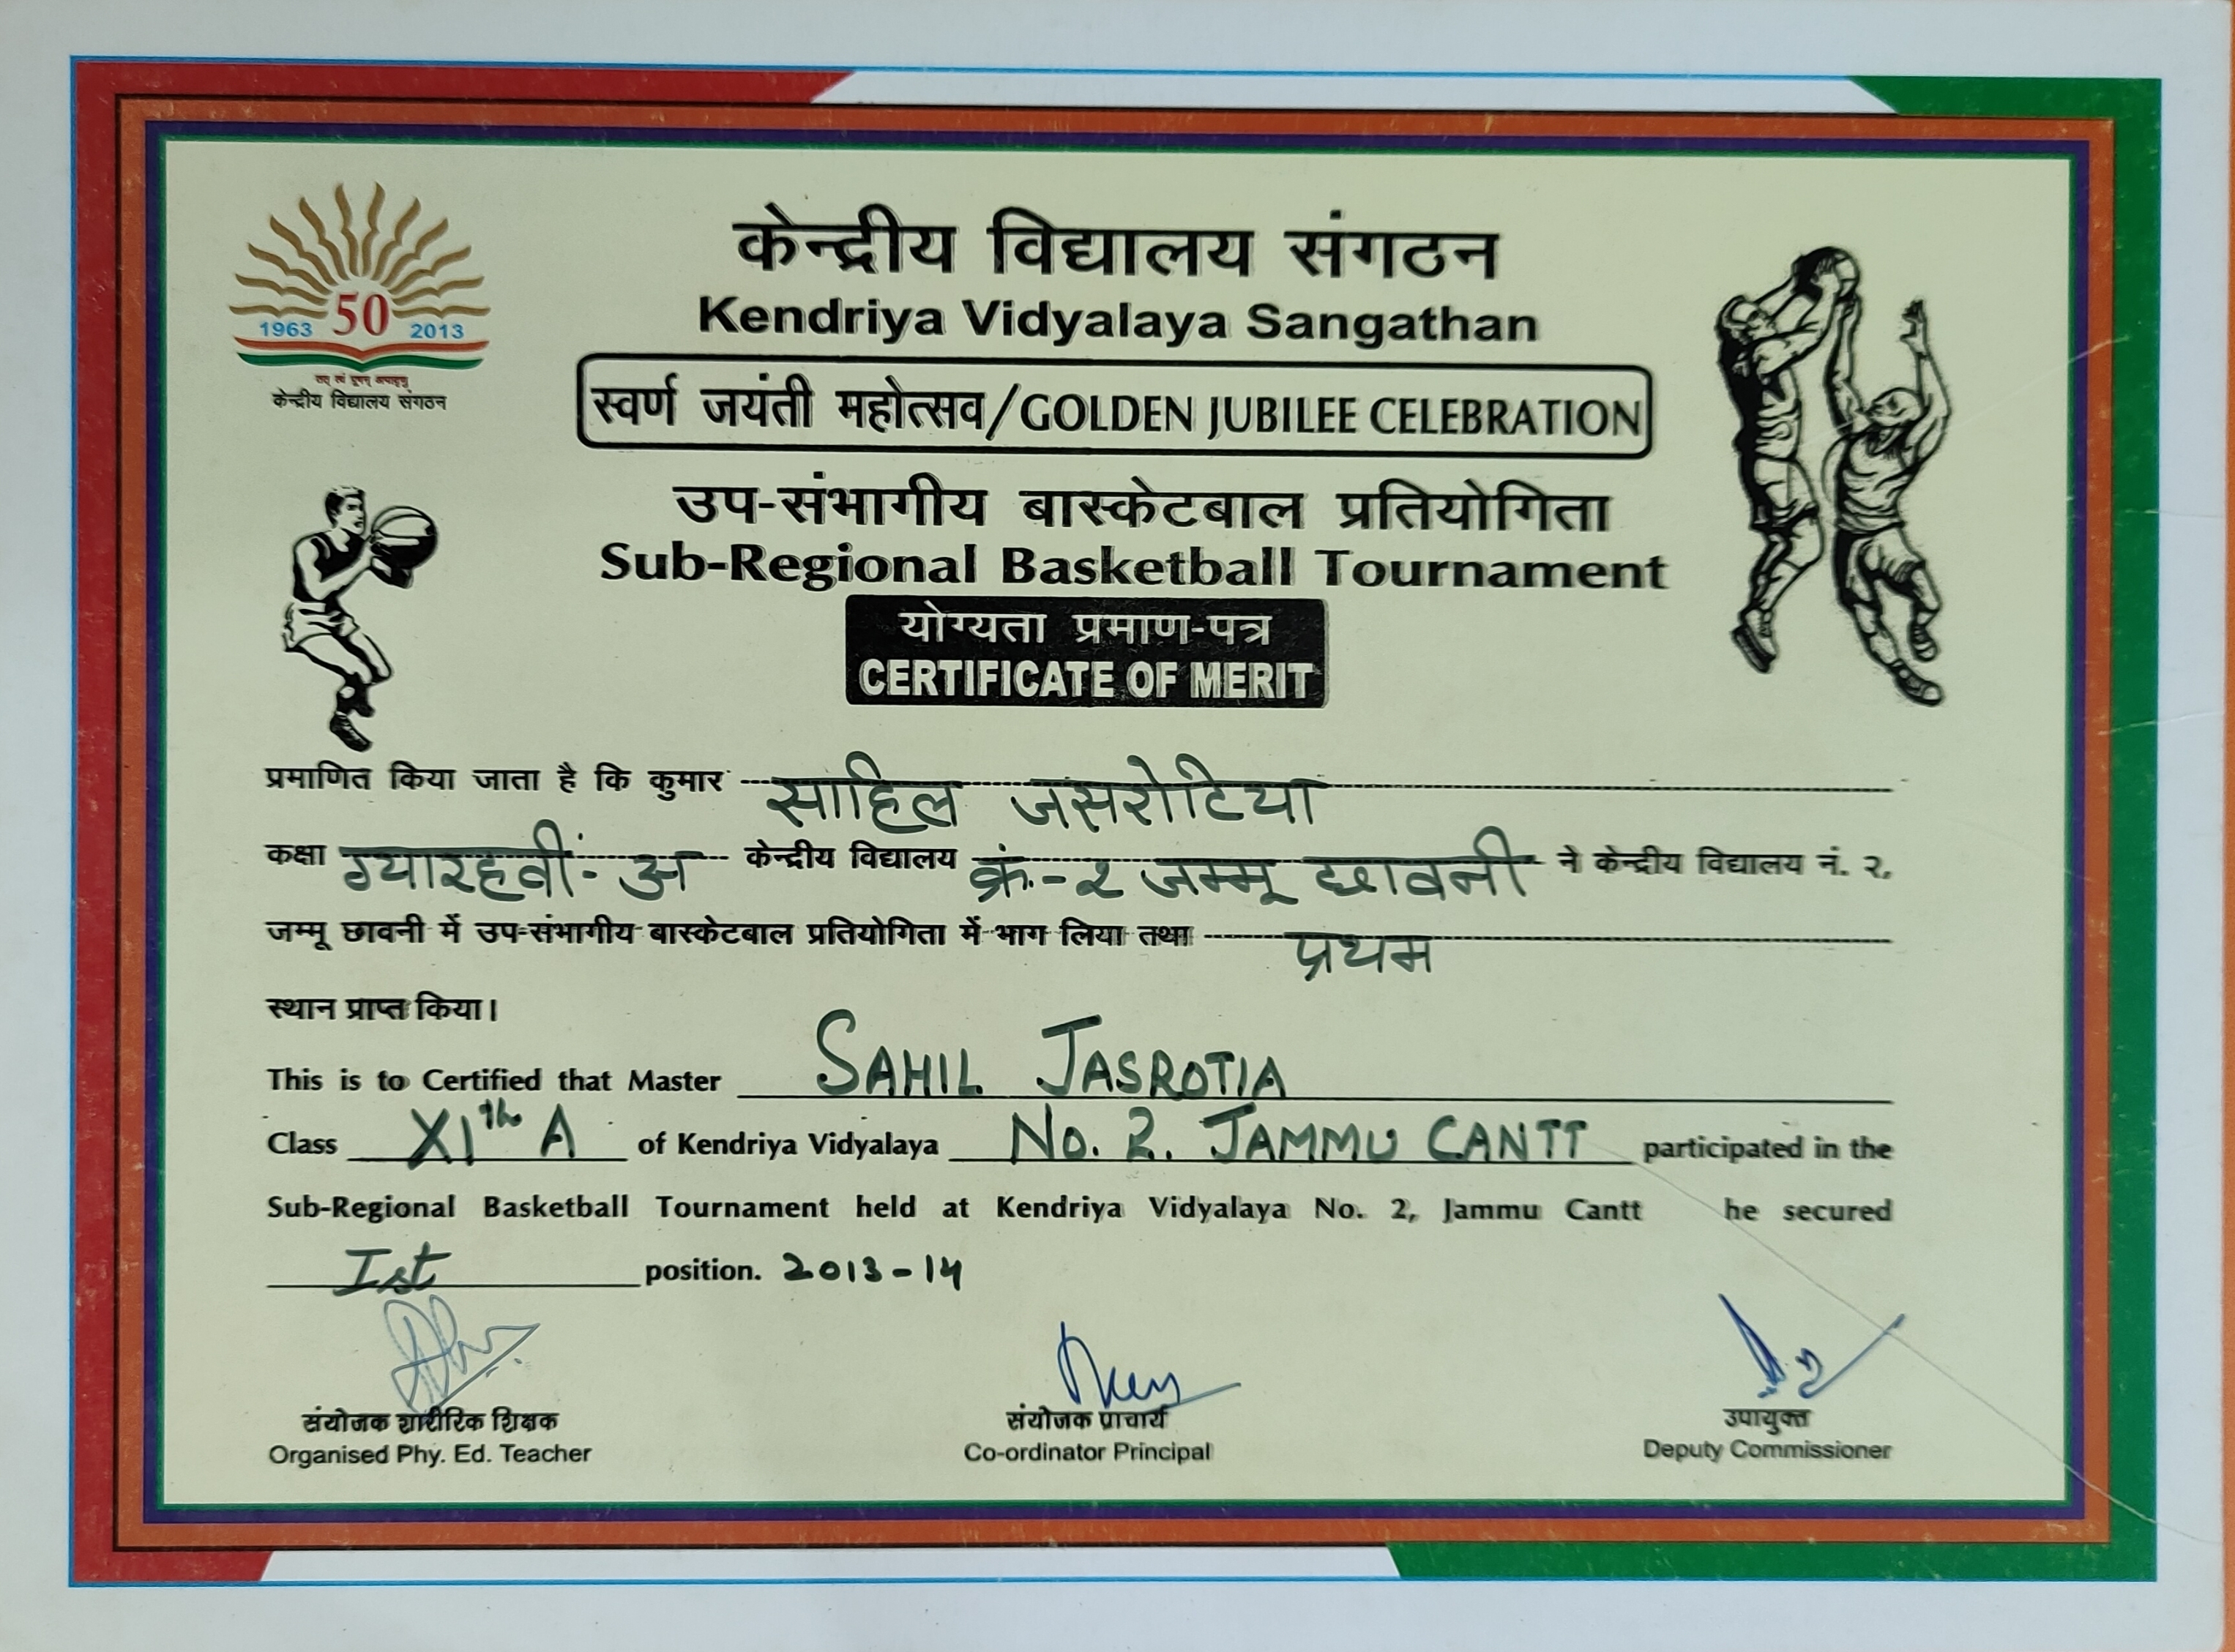 केन्द्रीय विद्यालय संगठन
Kendriya Vidyalaya Sangathan
1963 50 2013
केन्द्रीय विद्यालय संगठन
स्वर्ण जयंती महोत्सव/GOLDEN JUBILEE CELEBRATION
उप-संभागीय बास्केटबाल प्रतियोगिता
Sub-Regional Basketball Tournament
योग्यता प्रमाण-पत्र
CERTIFICATE OF MERIT
प्रमाणित किया जाता है कि कुमार साहिल जसरोटिया
कक्षा ग्यारहवीं-अ केन्द्रीय विद्यालय क्रं-२ जम्मू छावनी ने केन्द्रीय विद्यालय नं. २,
जम्मू छावनी में उप-संभागीय बास्केटबाल प्रतियोगिता में भाग लिया तथा प्रथम
स्थान प्राप्त किया।
This is to Certified that Master SAHIL JASROTIA
Class XIth A of Kendriya Vidyalaya No. 2. JAMMU CANTT participated in the
Sub-Regional Basketball Tournament held at Kendriya Vidyalaya No. 2, Jammu Cantt he secured
Ist position. 2013-14
संयोजक शारीरिक शिक्षक
Organised Phy. Ed. Teacher
संयोजक प्राचार्य
Co-ordinator Principal
उपायुक्त
Deputy Commissioner